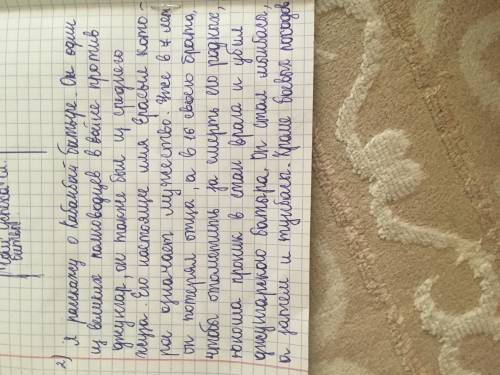 2) Я расскажу о Кабанбай батыре. Он один
из великих полководцев в войне против
джунгар, он также был из среднего
жуза. Его настоящие имя Ерасыл кото-
рое означает мужество. Уже в 7 лет
он потерял отца, а в 16 своего брата,
чтобы отомстить за смерть его родных,
юноша проник в стан врага и убил
джунгарского батора. Он стал мынбаши,
а затем и тунбасы. Кроме боевых походов